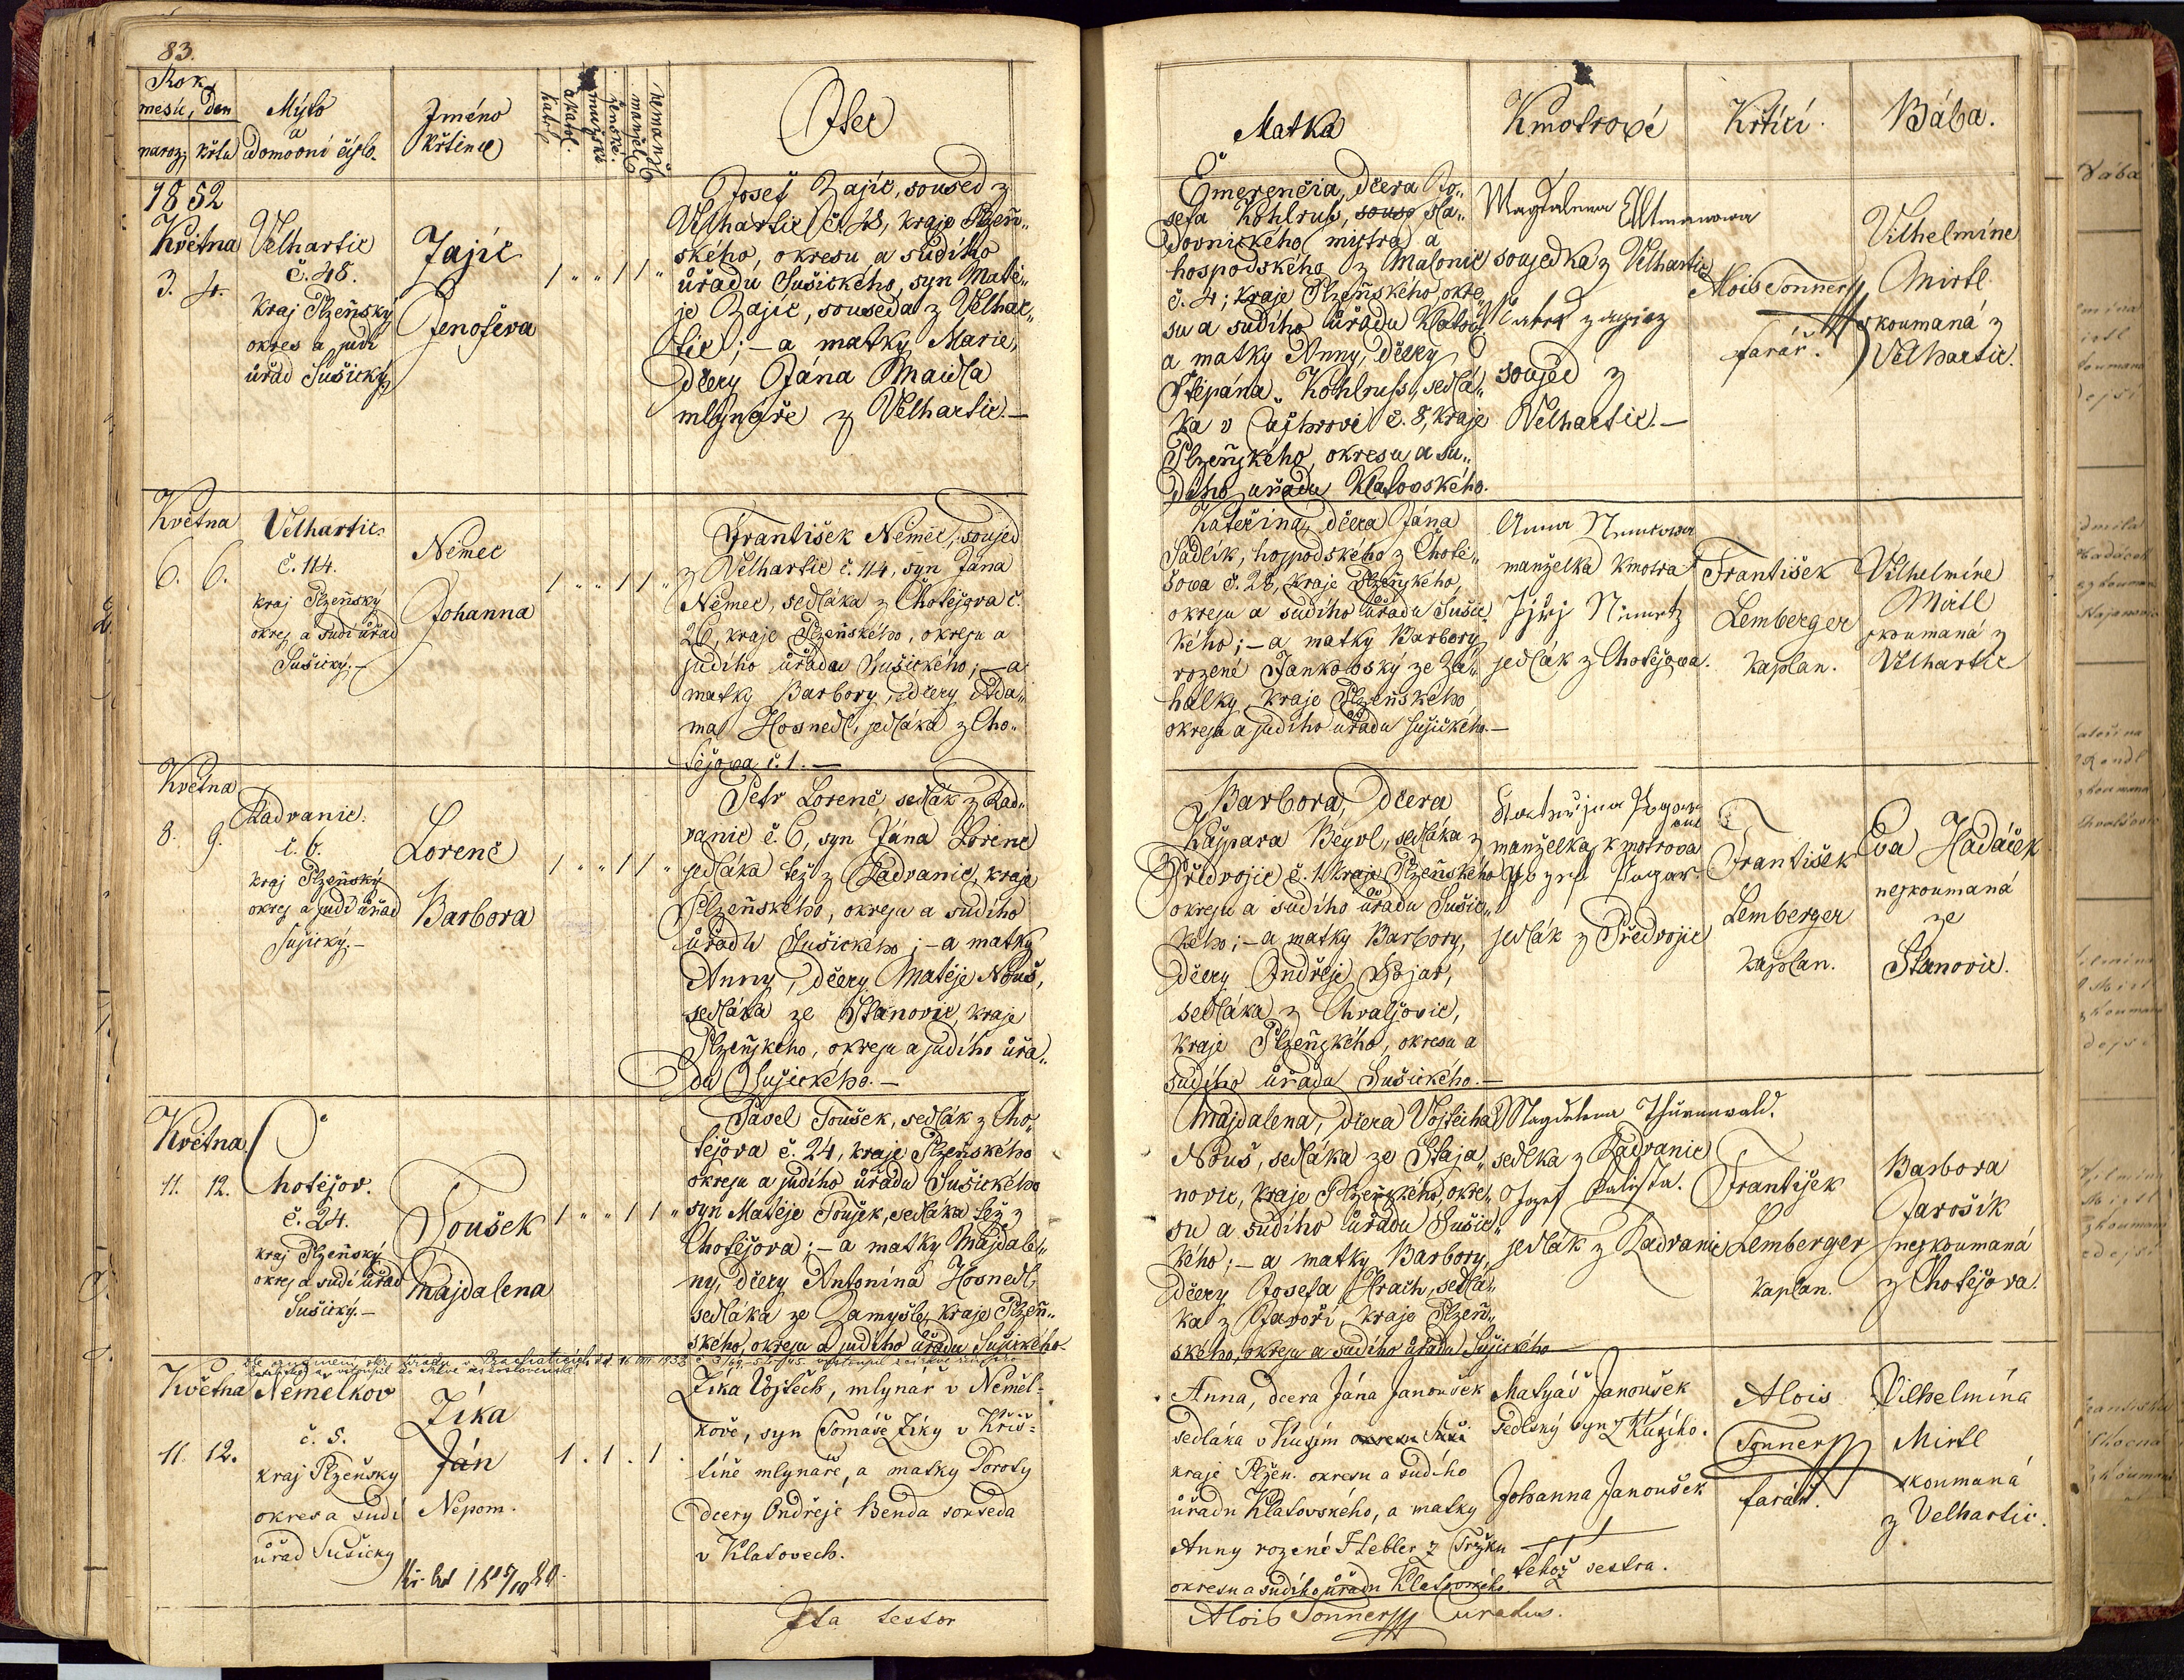 83.
Rok
mesíc, den
naroz. křtu
Mýto
a
domovní číslo.
Jméno
křtěnce
katol.
akatol.
mužské
ženské.
manžel.
nemanž.
Otec
1852
Května
3. 4.
Velhartic
č. 48.
kraj Plzeňský
okres a sudí
úřad Sušický
Zajíc
Jenofeva
1 " " 1 1 "
Josef Zajíc, soused z
Velhartic č. 48, kraje Plzeň„
ského, okresu a sudího
úřadu Sušického, syn Matě„
je Zajíc, souseda z Velhar„
tic; – a matky Marie,
dcery Jána Maidla
mlynáře z Velhartic. –
Května
6. 6.
Velhartic
č. 114.
kraj Plzeňský
okres a sudí úřad
Sušický. –
Němec
Johanna
1 " " 1 1 "
František Němec, soused
z Velhartic č. 114, syn Jána
Němec, sedláka z Chotěšova č.
26, kraje Plzeňského, okresu a
sudího úřadu Sušického; – a
matky Barbory, dcery Ada„
ma Hosnedl, sedláka z Cho„
těšova č. 1. –
Května
8. 9.
Radvanic.
č. 6.
kraj Plzeňský
okres a sudí úřad
Sušický. –
Lorenc
Barbora
1 " " 1 1 "
Petr Lorenc sedlák z Rad„
vanic č. 6, syn Jána Lorenc
sedláka též z Radvanic, kraje
Plzeňského, okresu a sudího
úřadu Sušického; – a matky
Anny, dcery Matěje Nouš,
sedláka ze Stanovic, kraje
Plzeňského, okresu a sudího úřa„
du Sušického. –
Května
11. 12.
Chotěšov.
č. 24.
kraj Plzeňský
okres a sudí úřad
Sušický. –
Toušek
Majdalena
1 " " 1 1 "
Pavel Toušek, sedlák z Cho„
těšova č. 24, kraje Plzeňského
okresu a sudího úřadu Sušického
syn Matěje Toušek, sedláka též z
Chotěšova; – a matky Majdale„
ny, dcery Antonína Hosnedl,
sedláka ze Zamyšle, kraje Plzeň„
ského, okresu a sudího úřadu Sušického.
Května
11. 12.
Nemelkov
č. 5.
kraj Plzeňsky
okres a sudí
úřad Sušicky
Zíka
Ján
Nepom.
1 . 1 . 1 .
Zíka Vojtěch, mlynář v Neměl-
kově, syn Tomáše Zíky v Křiš-
tíně mlynaře, a matky Doroty
dcery Ondřeje Benda souseda
v Klatovech.
Ita testor
Matka
Kmotrové
Křtící.
Bába.
Emerenčia, dcera Jo„
sefa Kohlruß, sla„
dovnického mistra a
hospodského z Malonic
č. 4; kraje Plzeňského, okre„
su a sudího úřadu Klatov
a matky Anny, dcery
Štěpána Kohlruß, sedlá„
ka v č. 8, kraje
Plzeňského, okresu a su„
dího úřadu Klatovského.
Magdalena Altmanowa
sousedka z Velhartic
soused z
Velhartic. –
Alois Tonner
farář.
Vilhelmíne
Mirtl
skoumaná z
Velhartic.
Kateřina, dcera Jána
Sadlík, hospodského z Chotě„
šowa č. 28, kraje Plzeňského,
okresu a sudího úřadu Sušic„
kého; – a matky Barbory
rozené Jankovský ze Zá„
halky, kraje Plzeňského,
okresu a sudího úřadu sušického. –
Anna
manželka kmotra
sedlák z Chotěšowa.
František
Lemberger
kaplan.
Vilhelmíne
Mirtl
skoumaná z
Velhartic
Barbora, dcera
Kašpara Beyvl, sedláka z
Předvojic č. 1 kraje Plzeňského
okresu a sudího úřadu Sušic„
kého; – a matky Barbory,
dcery Ondřeje Bojar,
sedláka z Chvalšovic,
kraje Plzeňského, okresu a
sudího úřadu Sušického. –
manželka kmotrova
sedlák z Předvojic
František
Lemberger
kaplan.
Eva Hadáček
neskoumaná
ze
Stanovic.
Majdalena, dcera Vojtěcha
Nouš, sedláka ze Staja„
novic, kraje Plzeňského, okre„
su a sudího úřadu Sušic„
kého; – a matky Barbory,
dcery Josefa Hrach, sedlá„
ka z Javoří, kraje Plzeň„
ského, okresu a sudího úřadu Sušického
Magdelena Thürnwald.
sedlka z Radvanic
Jozef Kalista.
sedlák z Radvanic
František
Lemberger
kaplan.
Barbora
Jarošík
neskoumaná
z Chotěšova.
Anna, dcera Jána Janoušek
sedláka v Kusím okresu
kraje Plžen. okresu a sudího
úřadu Klatovského, a matky
Anny rozené Hebler z Tržku
okresu a sudího úřadu Klatovského
Matyáš Janoušek
sedlský syn z Kusího.
Johanna Janoušek
tehož sestra.
Alois
Tonner
farář.
Vilhelmína
Mirtl
skoumaná
z Velhartic.
Alois Tonner Curatus.